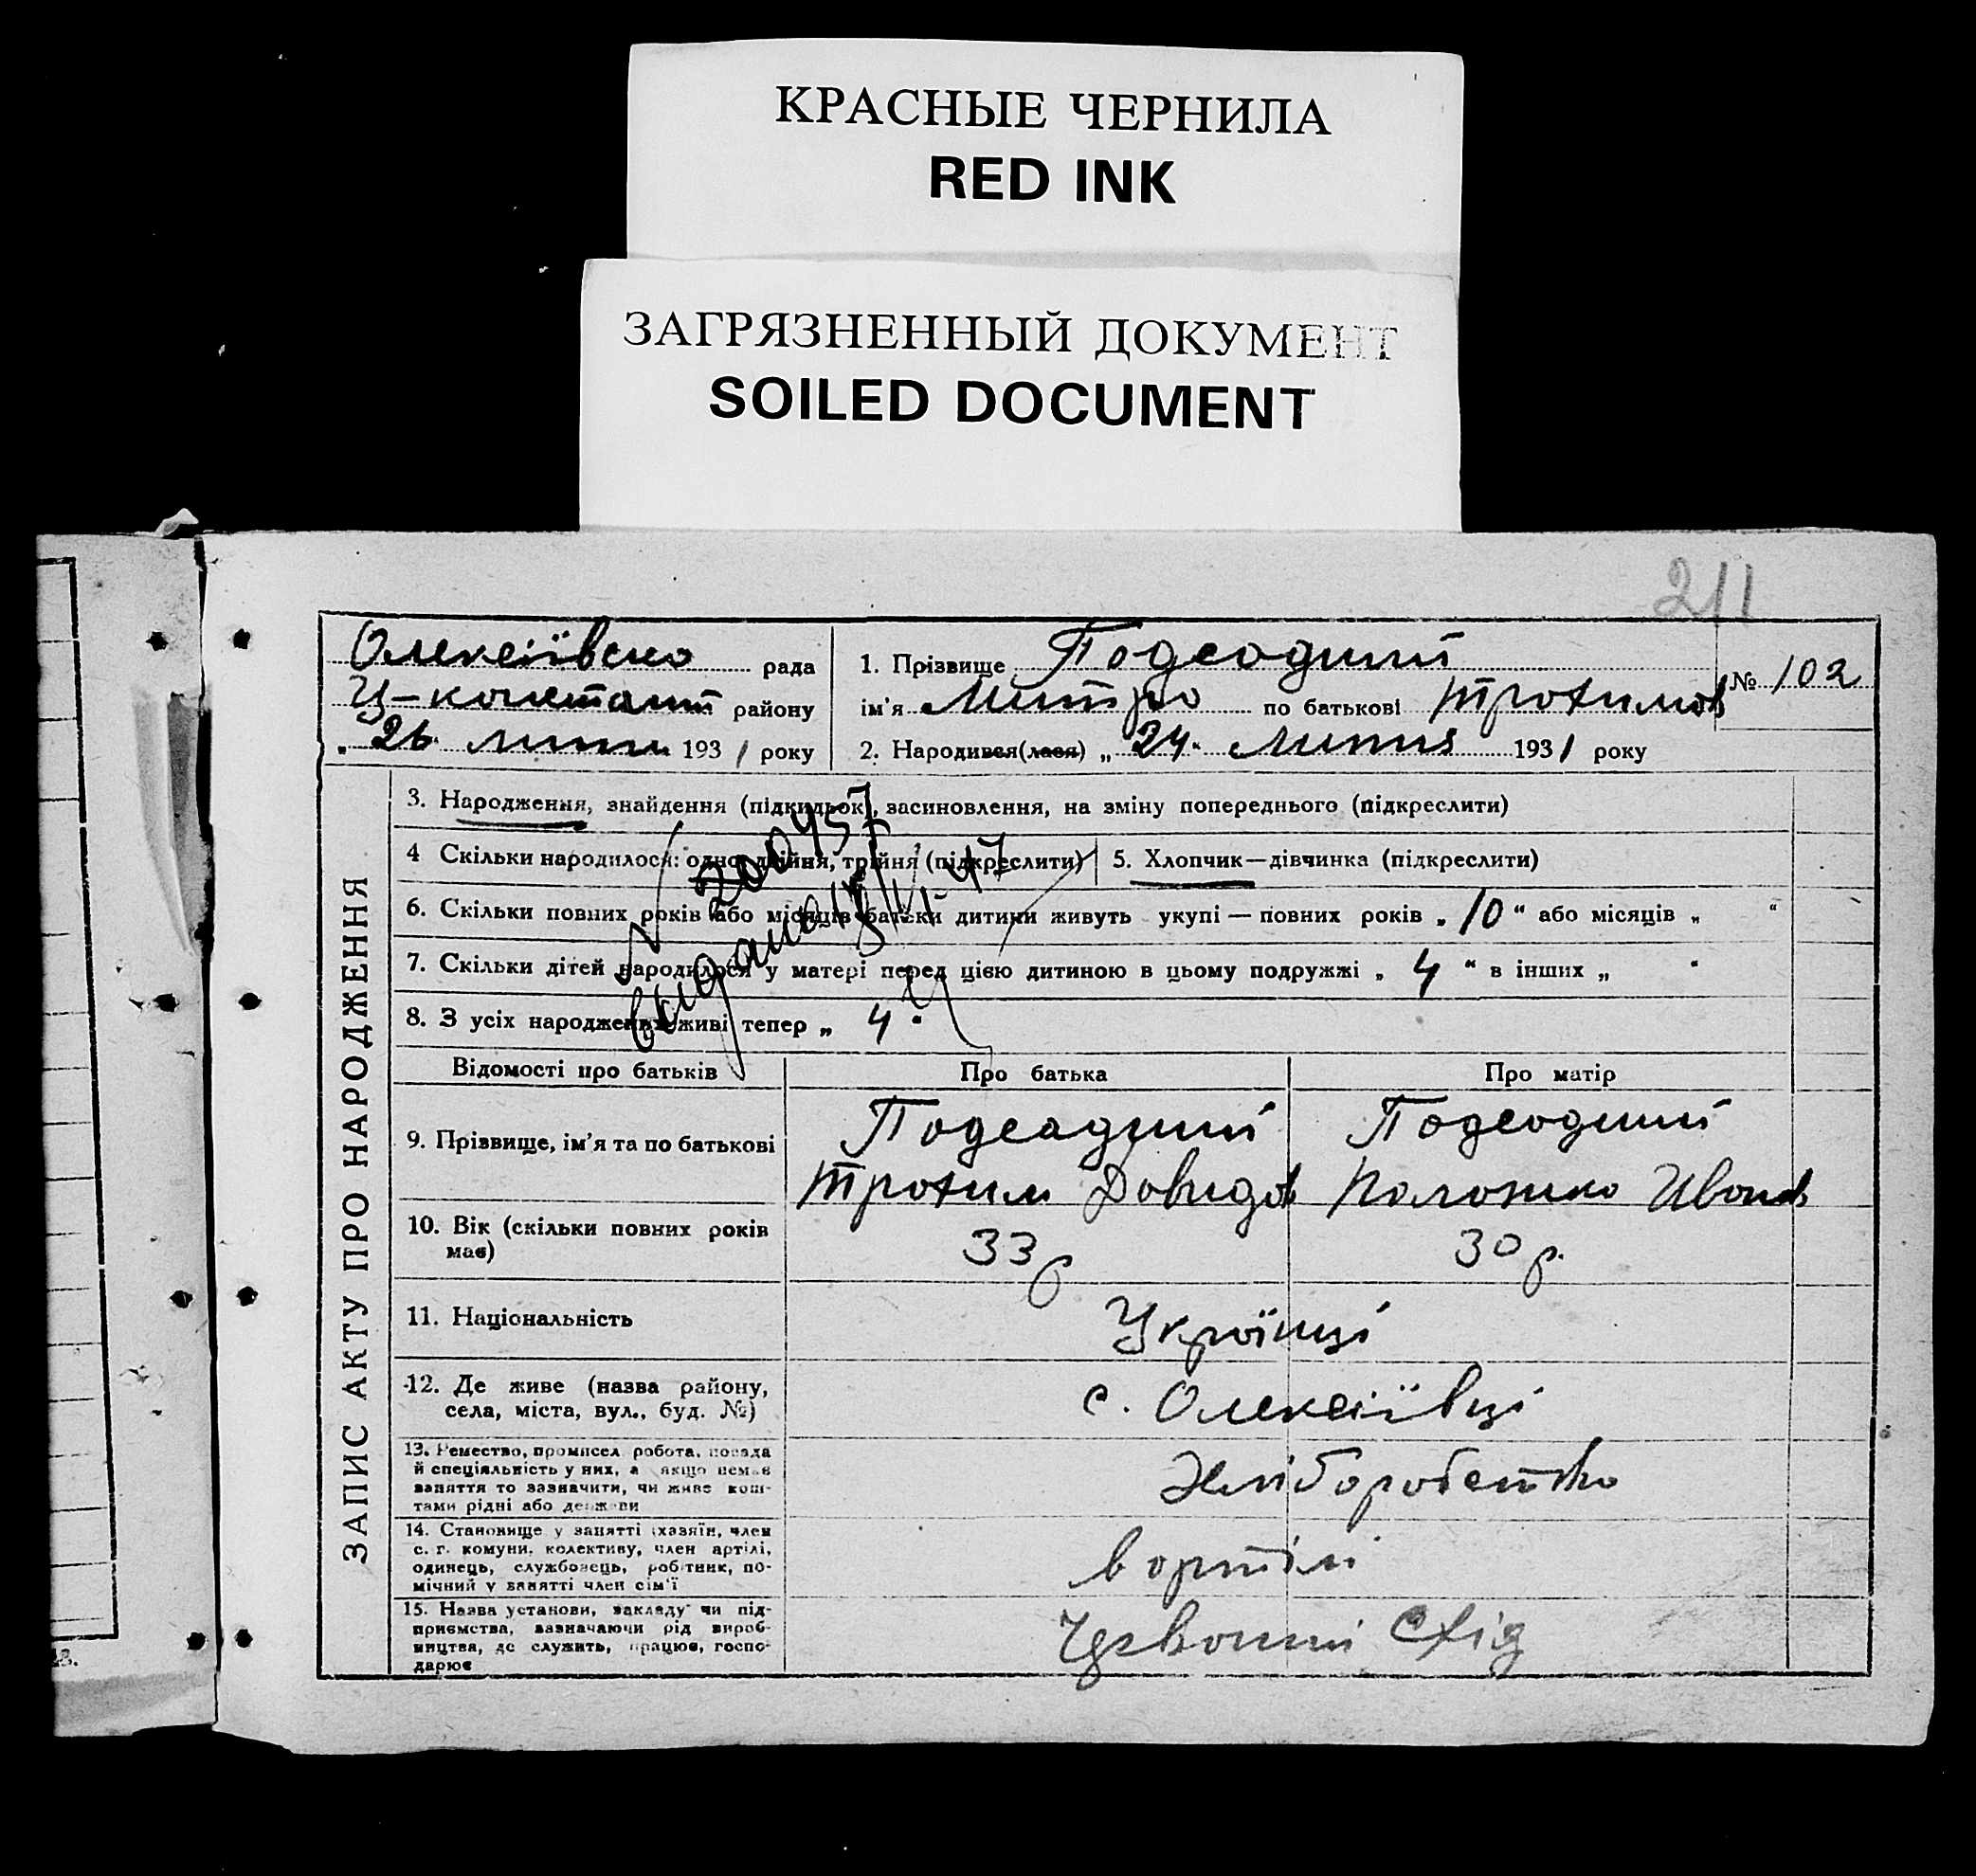 КРАСНЫЕ ЧЕРНИЛА
RED INK
ЗАГРЯЗНЕННЫЙ ДОКУМЕНТ
SOILED DOCUMENT
211
Олексіївско рада
района району
„26" липня 1931 року
1. Прізвище
ім'я Митро по батькові Трохимов
№ 102
2. Народився(лася) „24" Липня 1931 року
ЗАПИС АКТУ ПРО НАРОДЖЕННЯ
3. Народження, знайдення (підкидьок), засиновлення, на зміну попереднього (підкреслити)
4 Скільки народилося: одно, двійня, трійня (підкреслити)
5. Хлопчик—дівчинка (підкреслити)
6. Скільки повних років або місяців батьки дитини живуть укупі — повних років „10" або місяців „ "
7. Скільки дітей народилося у матері перед цією дитиною в цьому подружжі „4" в інших „ "
8. З усіх народжених живі тепер „4"
Відомості про батьків
Про батька
Про матір
9. Прізвище, ім'я та по батькові
Трохим Довидов
Иванов
10. Вік (скільки повних років має)
33 р
30 р.
11. Національність
Українці
12. Де живе (назва району,
села, міста, вул., буд. №)
с. Олексіївці
13. Ремество, промисел, робота, посада
й спеціяльність у них, а якщо немає
заняття то зазначити, чи живе кош-
тами рідні або держави
Хліборобство
14. Становище у занятті (хазяїн, член
с. г. комуни, колективу, член артілі,
одинець, службовець, робітник, по-
мічний у занятті член сім'ї
в ортілі
15. Назва установи, закладу чи під-
приємства, зазначаючи рід вироб-
ництва, де служить, працює, госпо-
дарює
Червоний Схід